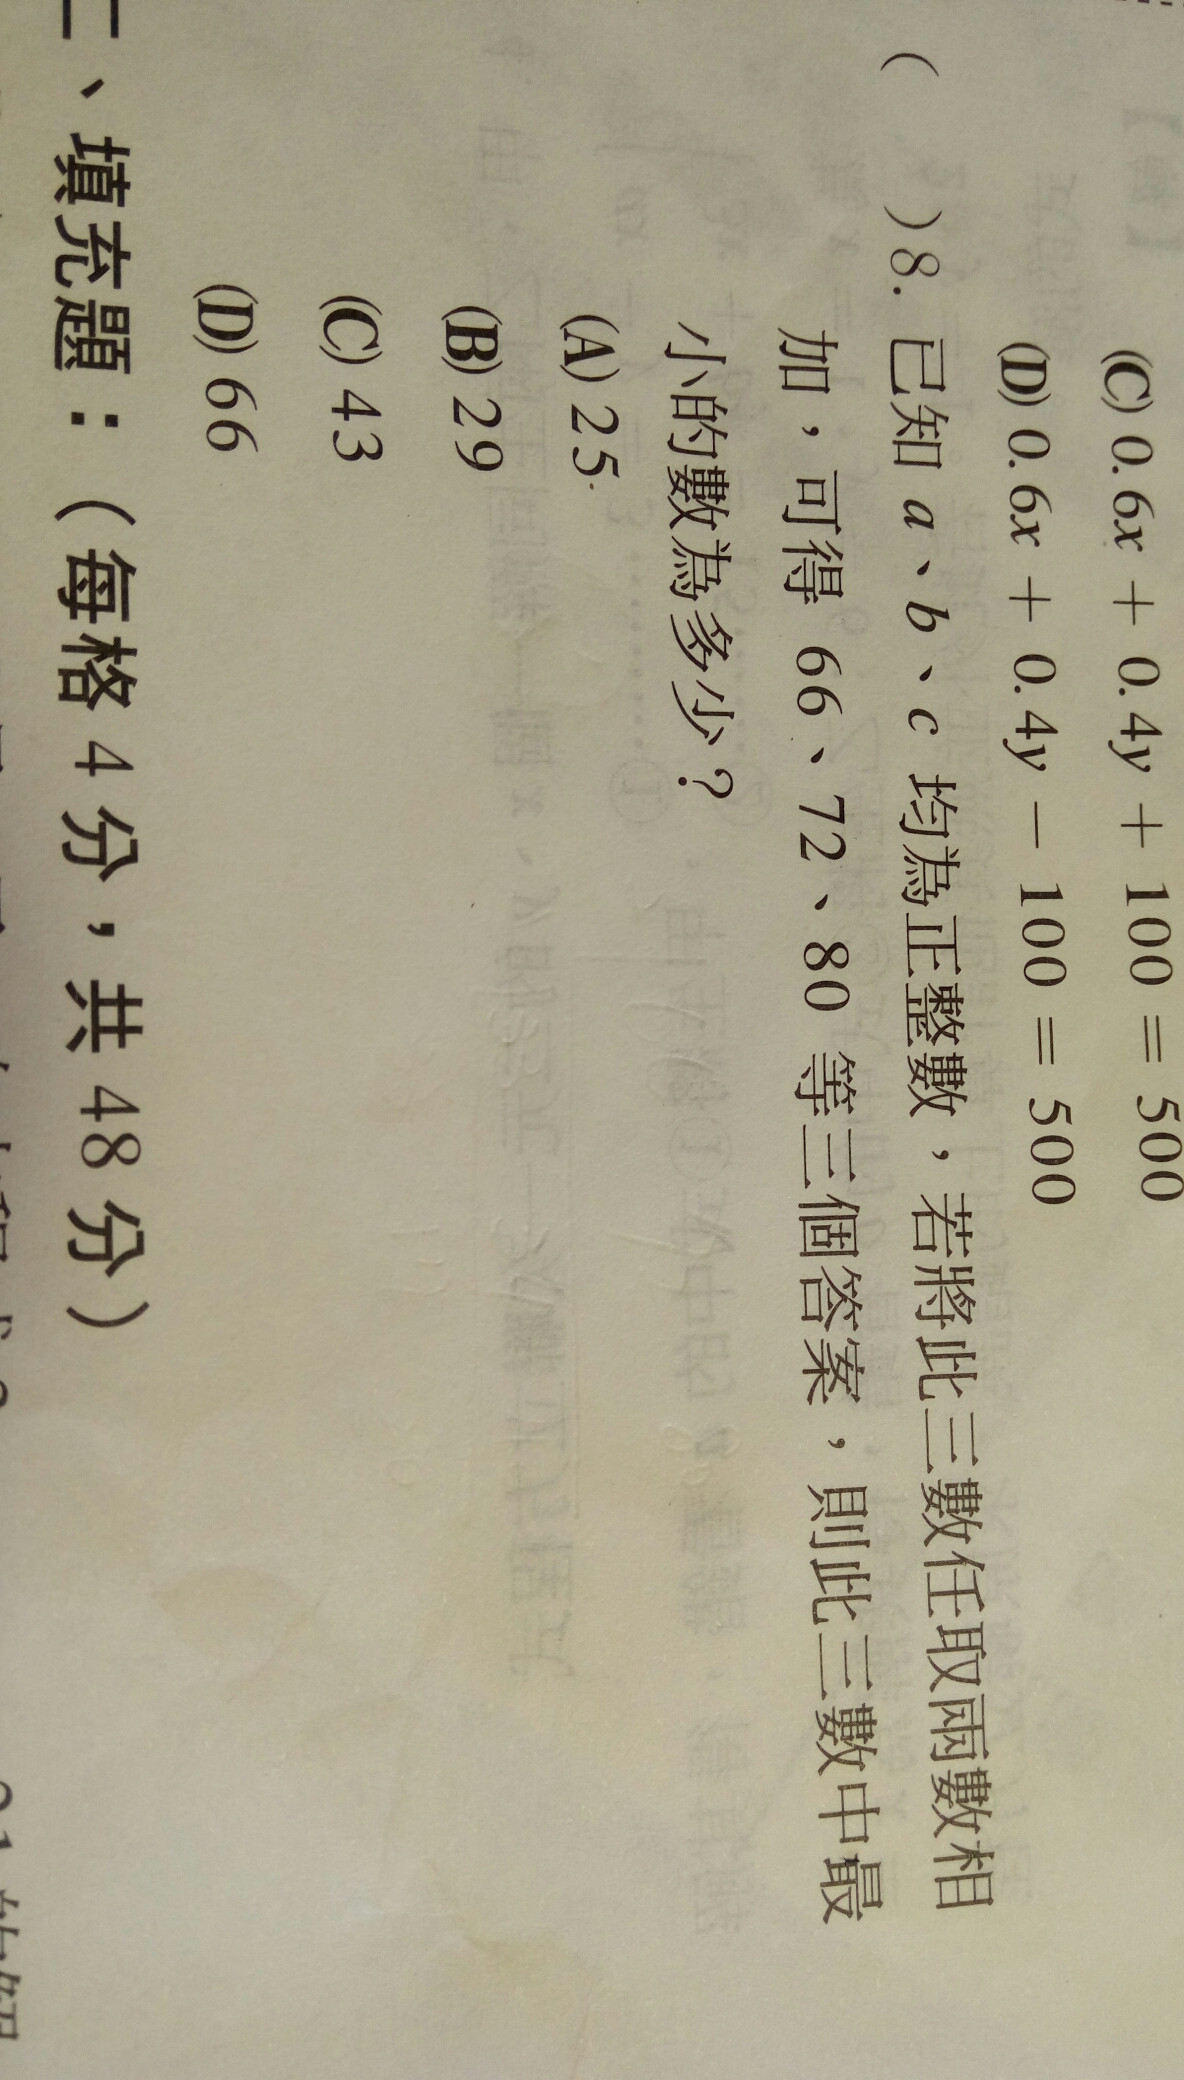 (C) 0.6x + 0.4y + 100 = 500
(D) 0.6x + 0.4y − 100 = 500
(　　) 8. 已知 a、b、c 均為正整數，若將此三數任取兩數相
加，可得 66、72、80 等三個答案，則此三數中最
小的數為多少？
(A) 25
(B) 29
(C) 43
(D) 66
二、填充題：（每格 4 分，共 48 分）